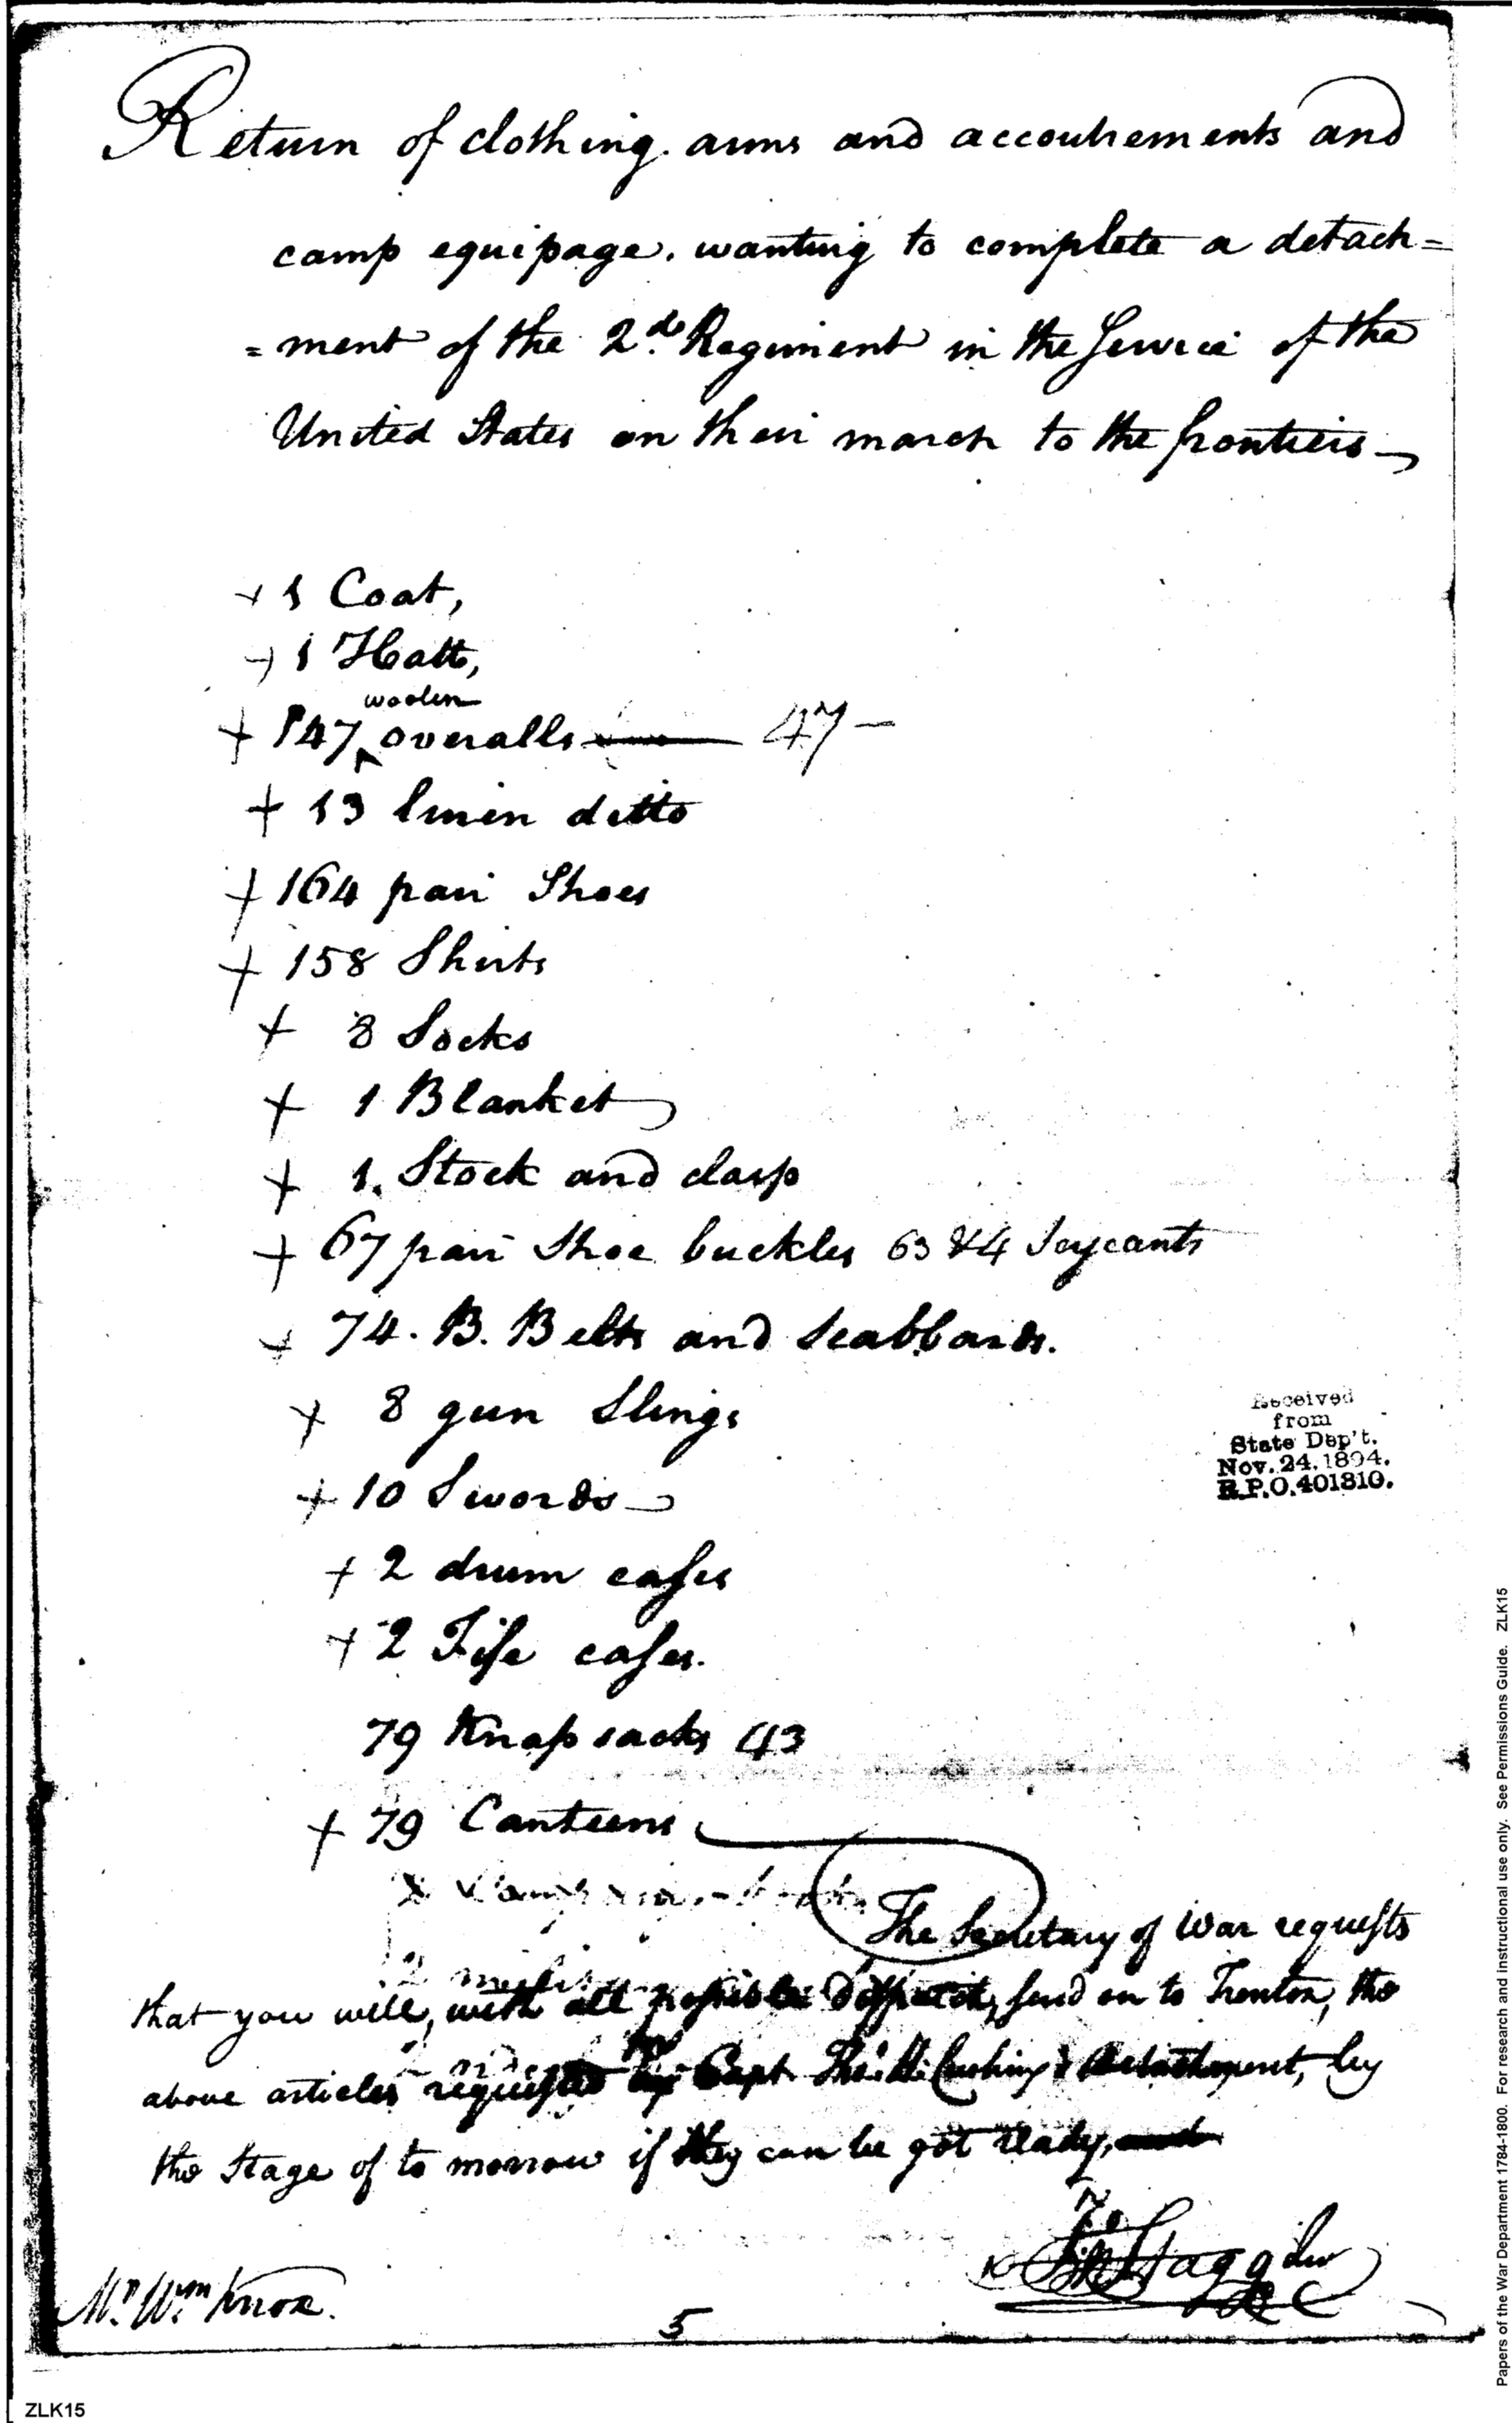 Return of clothing. arms and accoutrements and
camp equipage. wanting to complete a detach=
=ment of the 2.d Regiment in the Service of the
United States on their march to the frontiers
+ 1 Coat,
+ 1 Hatt,
woolen
+ 147 overalls 47
+ 13 linen ditto
+ 164 pair Shoes
+ 158 Shirts
+ 8 Socks
+ 1 Blanket
+ 1. Stock and clasp
+ 67 pair Shoe buckles 63 & 4 Serjeants
+ 74. B. Belts and Scabbards.
+ 8 gun Slings
+ 10 Swords
+ 2 drum cases
+ 2 Fife cases.
79 Knapsacks 43
+ 79 Canteens
The Secretary of War requests
that you will, with all possible dispatch, send on to Trenton, the
above articles requested for Capt. Tho.s H. Cushing's detachment, by
the Stage of to morrow if they can be got ready, and
Jn Stagg Junr
Mr. Wm Knox.
5
Received
from
State Dep't.
Nov. 24. 1894.
R.P.O. 401810.
Papers of the War Department 1784-1800. For research and instructional use only. See Permissions Guide. ZLK15
ZLK15